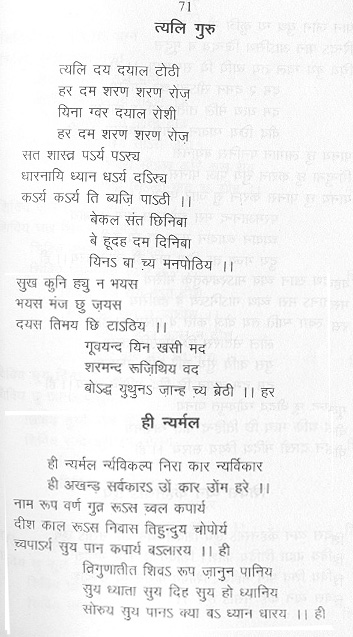 71
त्यलि गुरु
त्यलि दय दयाल टोठी
हर दम शरण शरण रोज़
यिना ग्वर दयाल रोशी
हर दम शरण शरण रोज़
सत शास्त्र पऽर्य पऽस्य
धारनायि ध्यान धऽर्य दऽस्यि
कऽर्य कऽर्य ति ब्यज़ि पाऽठी ।।
बेकल संत छिनिबा
बे हूदह दम दिनिबा
यिनऽ बा च़्य मनपोठिय ।।
सुख कुनि ह्यु न भयस
भयस मंज छु ज़यस
दयस तिमय छि टाऽठिय ।।
गूवयन्द यिन खसी मद
शरमन्द रूज़िथिय वद
बोऽद्ध युथुनऽ जान्ह च़्य ब्रेठी ।। हर
ही न्यर्मल
ही न्यर्मल र्न्यविकल्प निरा कार न्यर्विकार
ही अखन्ड़ सर्वकारऽ ओं कार ओंम हरे ।।
नाम रूप वर्ण गुत्र रूऽस च़्वल कपार्य
दीश काल रूऽस निवास तिहुन्दुय चोपोर्य
च़्वपाऽर्य सुय पान कपार्य बऽलारय ।। ही
त्रिगुणातीत शिवऽ रूप ज़ानुन पानिय
सुय ध्याता सुय दिह सुय हो ध्यानिय
सोरुय सुय पानऽ क्या बऽ ध्यान धारय ।। ही